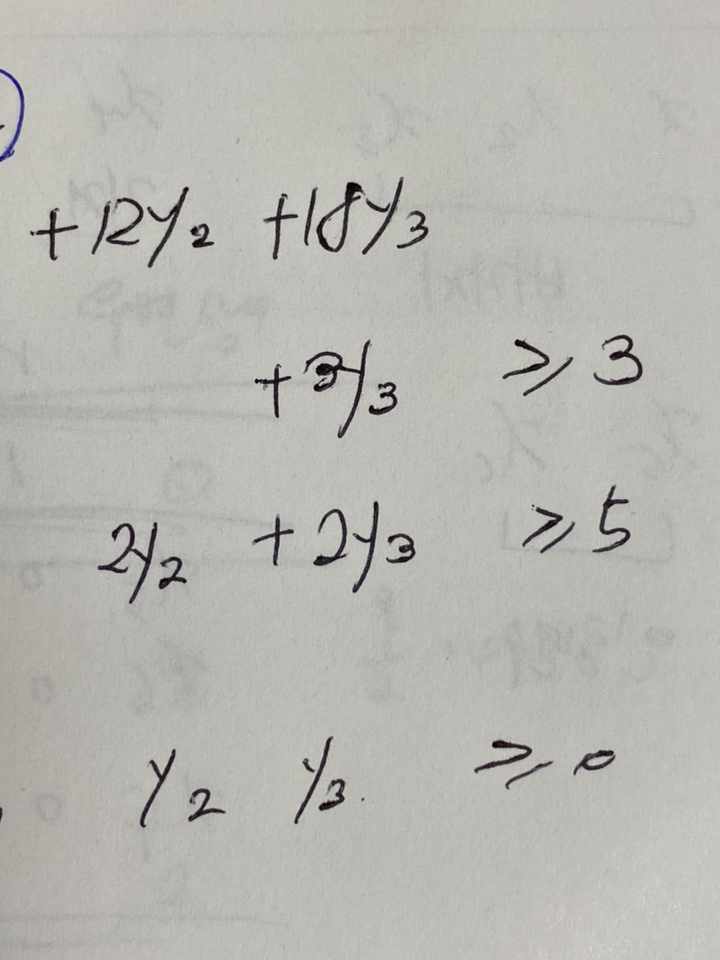 +12y₂ +18y₃
+3y₃ ≥ 3
2y₂ + 2y₃ ≥ 5
y₂ y₃ ≥ 0